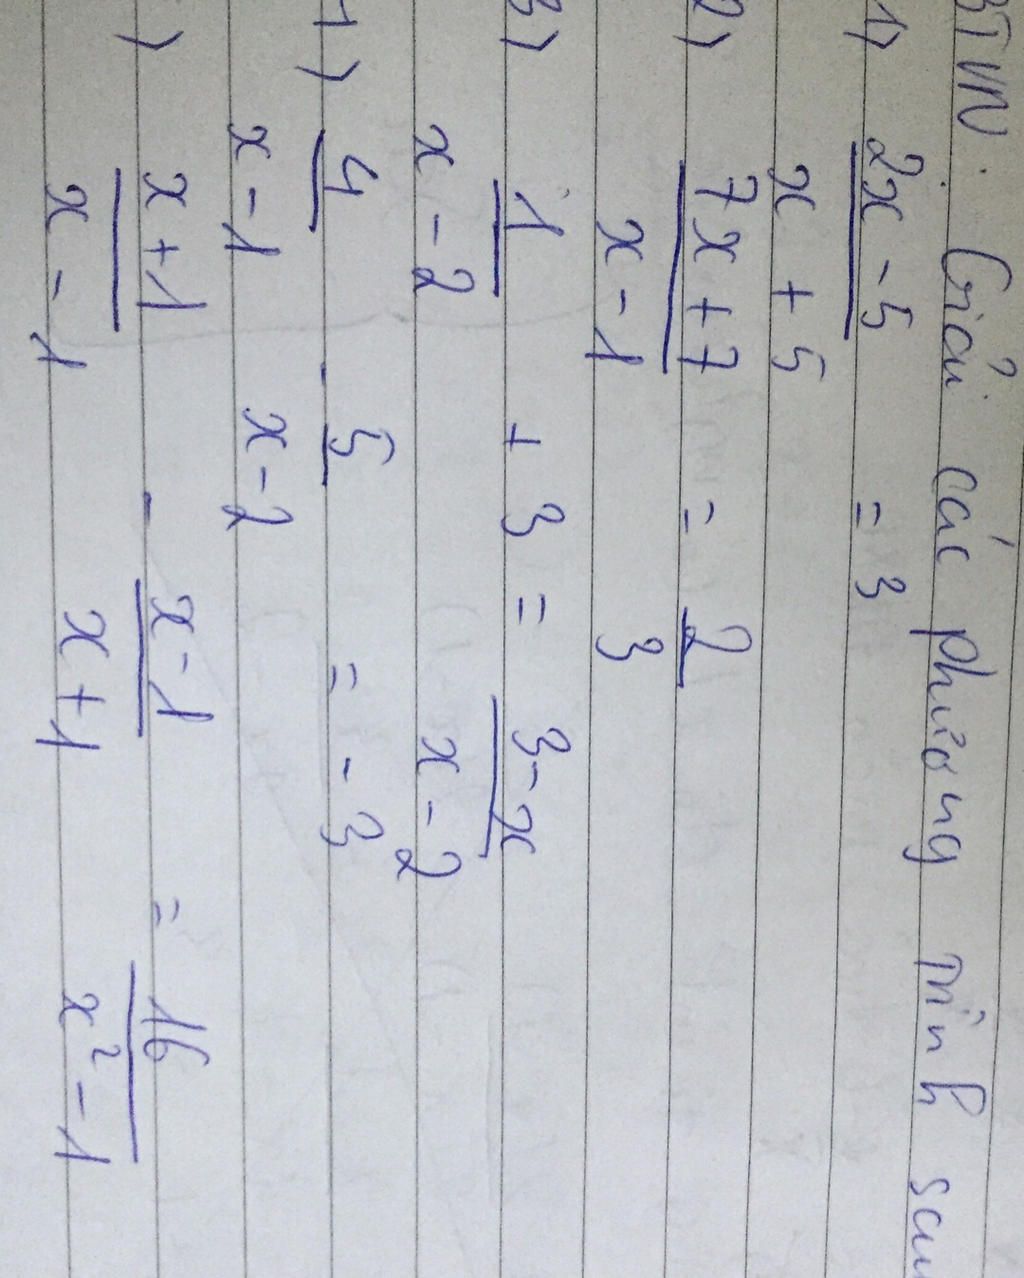 BTVN: Giải các phương trình sau
1) (2x - 5)/(x + 5) = 3
2) (7x + 7)/(x - 1) = 2/3
3) 1/(x - 2) + 3 = (3 - x)/(x - 2)
4) 4/(x - 1) - 5/(x - 2) = - 3
) (x + 1)/(x - 1) - (x - 1)/(x + 1) = 16/(x² - 1)